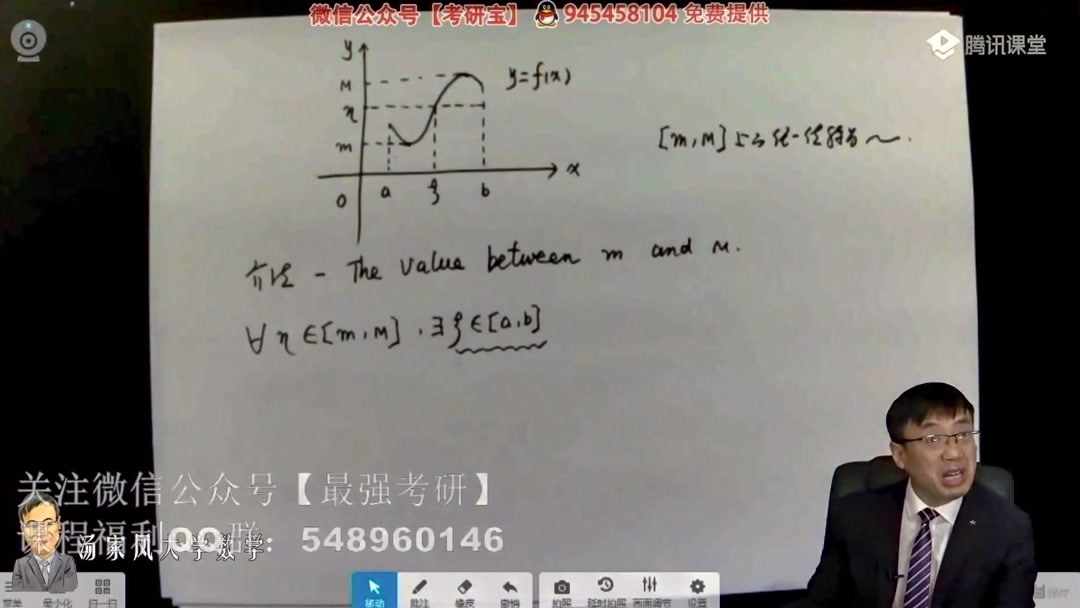 微信公众号【考研宝】 945458104 免费提供
腾讯课堂
y
M
η
m
0
a
ξ
b
x
y=f(x)
[m,M]上的任一值称为～.
介值 - The value between m and M.
∀ η ∈[m,M] , ∃ ξ ∈[a,b]
关注微信公众号【最强考研】
课程福利QQ群: 548960146
汤家凤大学数学
菜单
最小化
扫一扫
移动
批注
橡皮
撤销
拍照
延时拍照
画面调节
设置